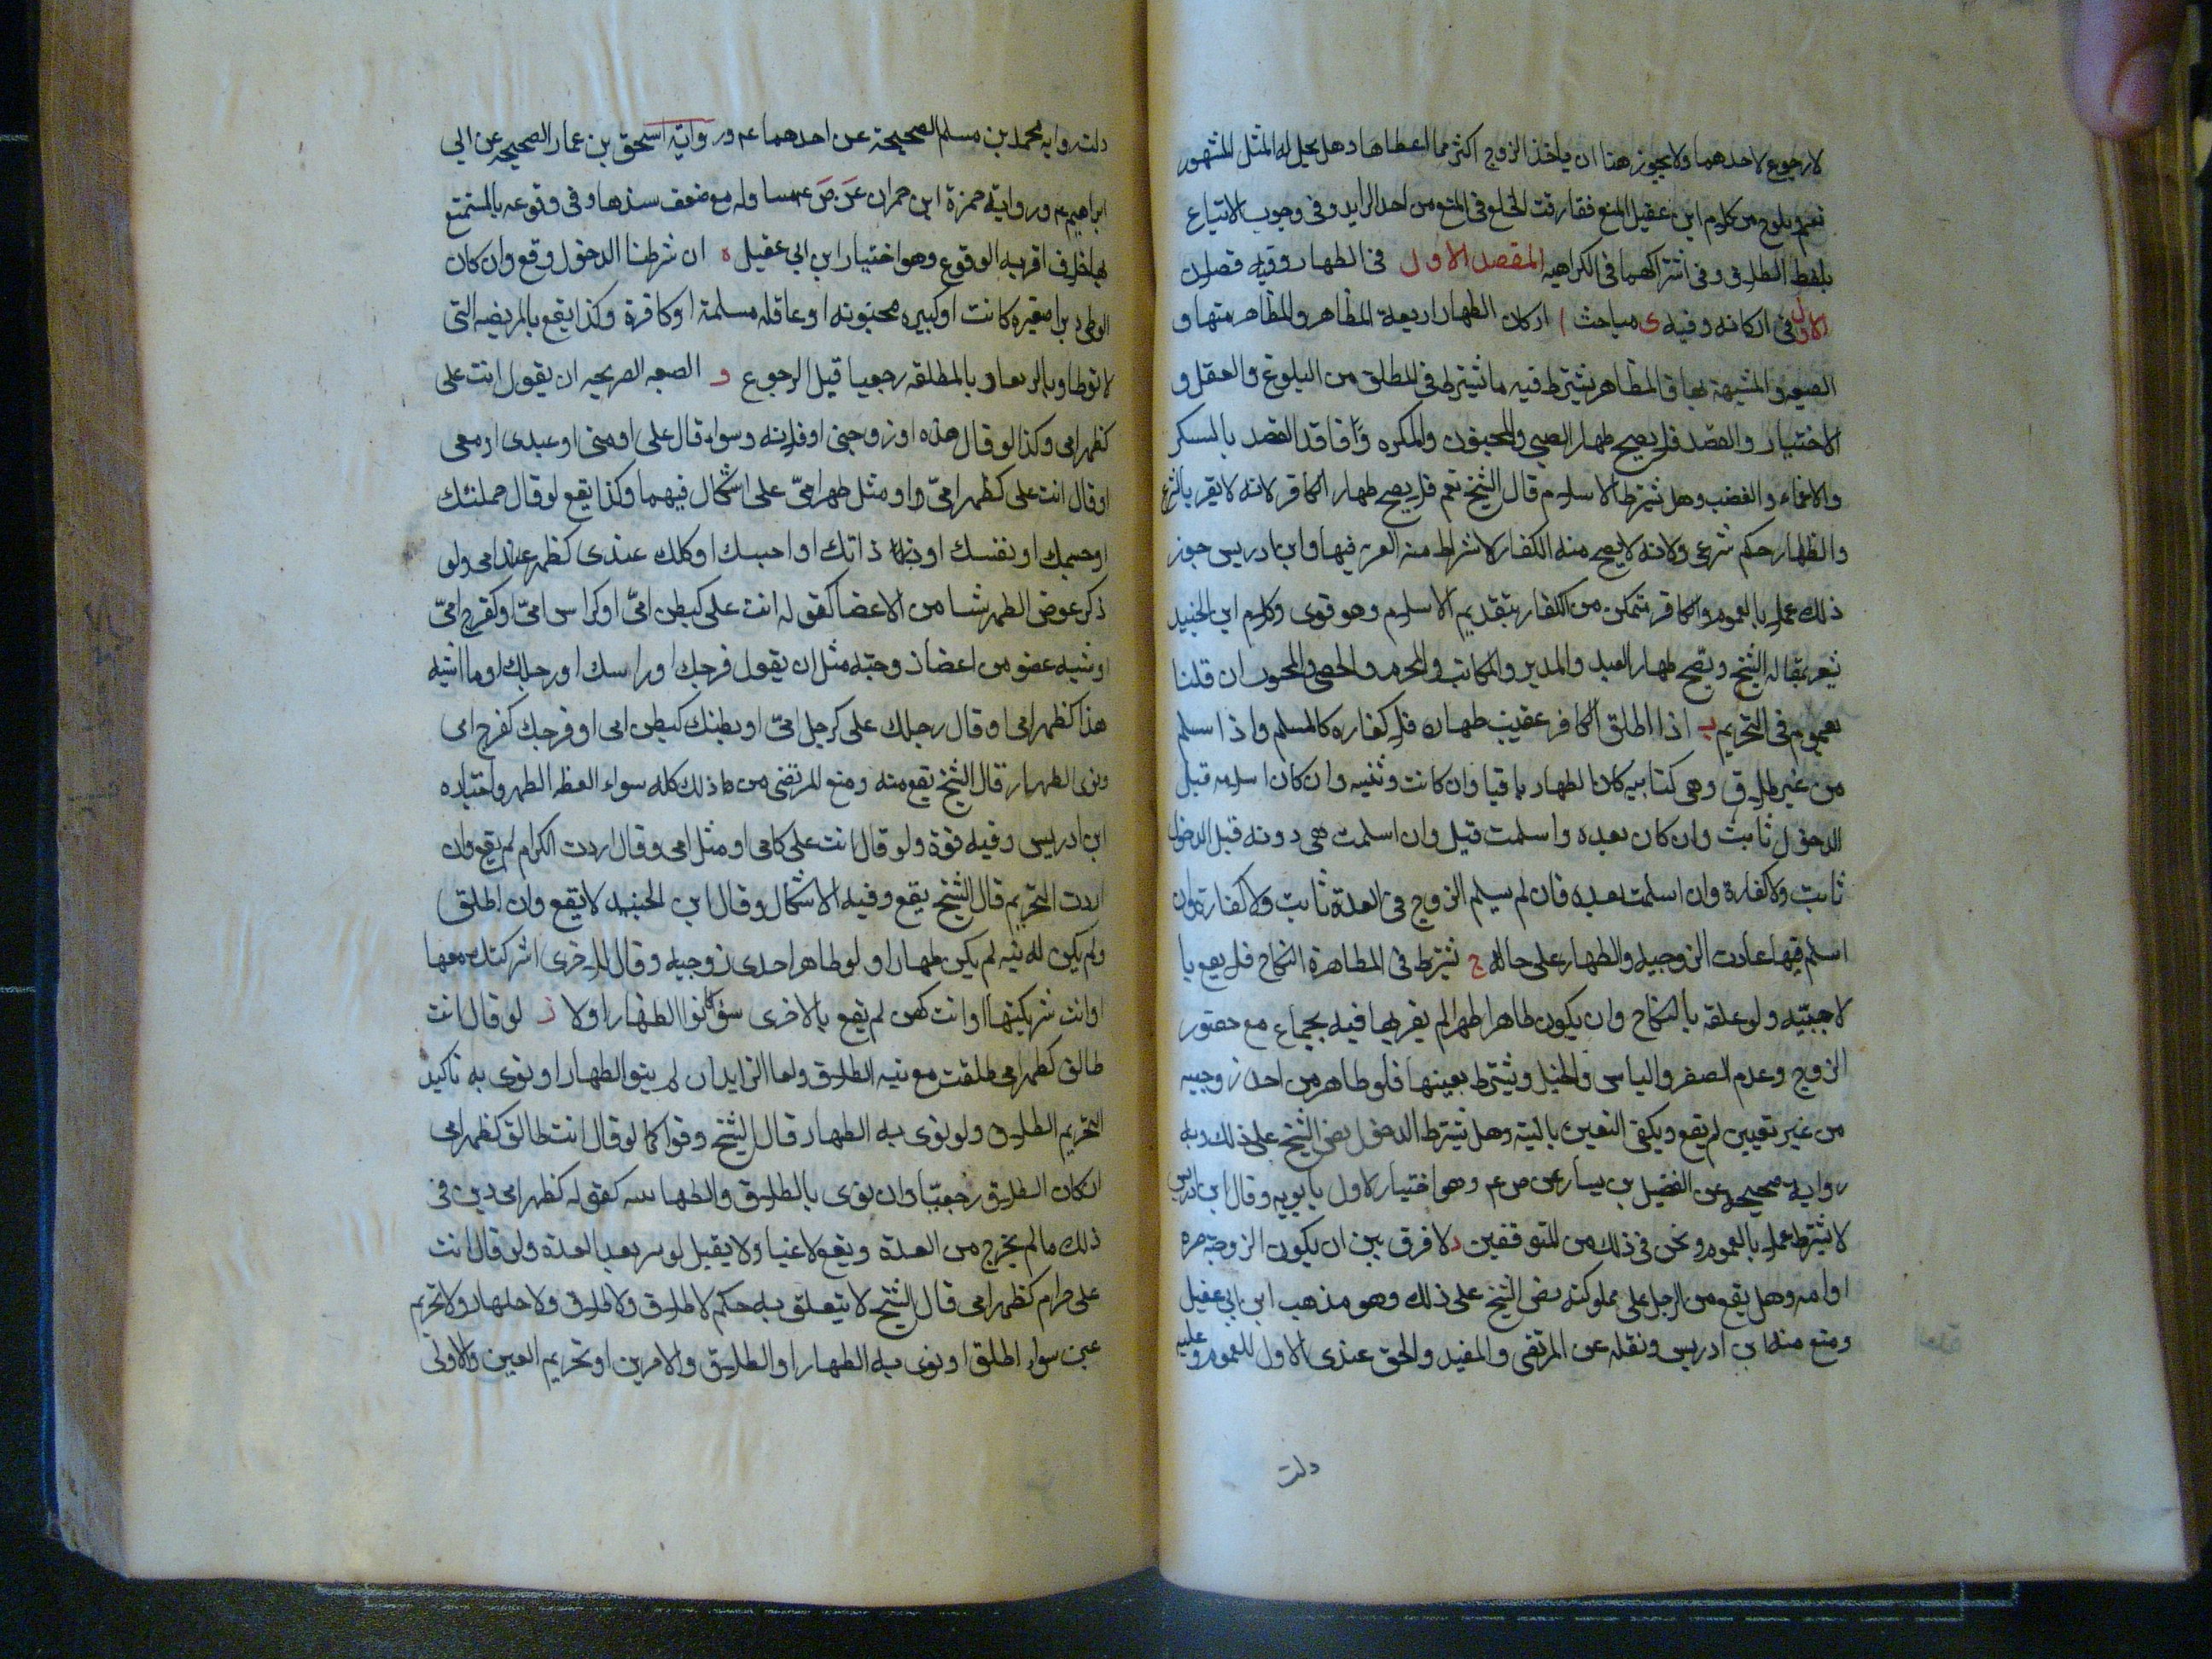 لا رجوع لاحدهما ولا يجوز هنا ان ياخذ الزوج اكثر مما اعطاها وهل يحل له المثل المشهور
نعم ويلوح من كلام ابن عقيل المنع ففارقت الخلع في المنع من اخذ الزايد وفي وجوب الاتباع
بلفظ الطلاق وفي اشتراكهما في الكراهيه المقصد الاول في الظهار وفيه فصلان
الاول في اركانه وفيه ى مباحث ا اركان الظهار اربعة المظاهر والمظاهر منها و
الصيغه والمشبهة بها فالمظاهر يشترط فيه ما يشترط في المطلق من البلوغ والعقل و
الاختيار والقصد فلا يصح ظهار الصبي والمجنون والمكره وفاقد القصد بالسكر
والاغماء والغضب وهل يشترط الاسلام قال الشيخ نعم فلا يصح ظهار الكافر لانه لا يقر بالشرع
والظهار حكم شرعي ولانه لا يصح منه الكفار لاشتراط فيها وابن ادريس جوز
ذلك عملا بالعموم والكافر متمكن من الكفار بتقديم الاسلام وهو قوى وكلام ابن الجنيد
يشعر بمقاله الشيخ ويصح ظهار العبد والمدبر والمكاتب والحر والخصي والمجبوب ان قلنا
بعمومه في التحريم ب اذا اطلق الكافر عقيب ظهاره فلا كفاره كالمسلم واذا اسلم
من غير طلاق وهى كتابيه كان الظهار باقيا وان كانت وثنيه وان كان اسلامه قبل
الدخول ثابت وان كان بعده واسلمت قبل وان اسلمت هى دونه قبل الدخول
ثابت ولا كفارة وان اسلمت بعده فان لم يسلم الزوج في العدة ثابت ولا كفارة وان
اسلم فيها عادت الزوجيه والظهار على حاله ج يشترط في المظاهرة النكاح فلا يقع با
لاجنبيه ولو علقه بالنكاح وان يكون طاهرا طهرا لم يقربها فيه بجماع مع حضور
الزوج وعدم الصغر والياس والحبل ويشترط بعينها فلو ظاهر من احد زوجيه
من غير تعيين لم يقع ويكفى التعيين بالنية وهل يشترط الدخول نص الشيخ على ذلك وبه
رواية صحيحة عن الفضيل بن يسار عن ص ع وهو اختيار الاول بابويه وقال ابن ادريس
لا يشترط عملا بالعموم ونحن في ذلك من المتوقفين د لا فرق بين ان يكون الزوجة حرة
او امه وهل يقع من الرجل على مملوكته نص الشيخ على ذلك وهو مذهب ابن ابي عقيل
ومنع منه ابن ادريس ونقله عن المرتضى والمفيد والحق عندى الاول للعموم وعليه
دلت
دلت رواية محمد بن مسلم الصحيحة عن احدهما ع ورواية اسحق بن عمار الصحيحه عن ابي
ابراهيم ع ورواية حمزة ابن حمران عن ص مع ضعف سندها وفي وقوعه بالمستمتع
بها خلاف اقربه الوقوع وهو اختيار ابن ابي عقيل ه ان شرطنا الدخول وقع وان كان
الوطى دبرا صغيره كانت او كبيره مجنونه او عاقله مسلمة او كافرة وكذا يقع بالمريضه التى
لا توطا وبالرتقا وبالمطلقه رجعيا قبل الرجوع و الصيغه الصريحه ان يقول انت على
كظهر امى وكذا لو قال هذه او زوجتى او فلانه وسواء قال على او منى او عندى او معى
او قال انت على كظهر امىّ او مثل ظهر امىّ على اشكال فيهما وكذا يقع لو قال جملتك
او جسمك او نفسك او ذاتك او كلك عندى كظهر امى ولو
ذكر عوض الظهر شيا من الاعضا كقوله انت على كبطن امىّ او كراس امىّ او كفرج امىّ
او شبه عضو من اعضاء زوجته مثل ان يقول فرجك او راسك او رجلك او ما اشبه
هذا كظهر امى او قال رجلك على كرجل امىّ او بطنك كبطن امى او فرجك كفرج امى
ونوى الظهار قال الشيخ يقع منه ومنع المرتضى من ذلك كله سواء لفظ الظهر واختياره
ابن ادريس وفيه قوة ولو قال انت على كامى او مثل امى وقال اردت الكرام لم يقع وان
اردت التحريم قال الشيخ يقع وفيه الاشكال وقال ابن الجنيد لا يقع وان اطلق
ولم يكن له نيه لم يكن ظهارا ولو ظاهر احدى زوجيه وقال للاخرى اشركتك معها
او انت شريكتها او انت كهى لم يقع بالاخرى سواء نوا الظهار او لا ز لو قال انت
طالق كظهر امى طلقت مع نيه الطلاق ولغا الزايد ان لم ينو الظهار او نوى به تاكيد
التحريم الطلاق ولو نوى به الظهار قال الشيخ وقوا كما لو قال انت طالق كظهر امى
ان كان الطلاق رجعيا وان نوى بالطلاق والظهار كقوله كظهر امى دين في
ذلك ما لم يخرج من العدة ويقع لاغيا ولا يقبل بعد العدة ولو قال انت
على حرام كظهر امى قال الشيخ لا يتعلق به حكم لا طلاق ولا ظهار ولا تحريم
عين سواء اطلق او نوى به الظهار او الطلاق والامرين او تحريم العين والاولى